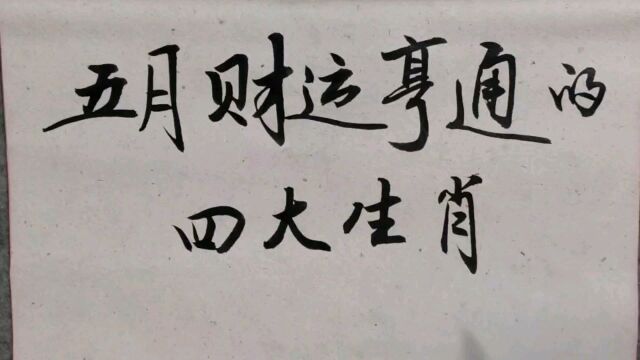 五月财运亨通的
四大生肖